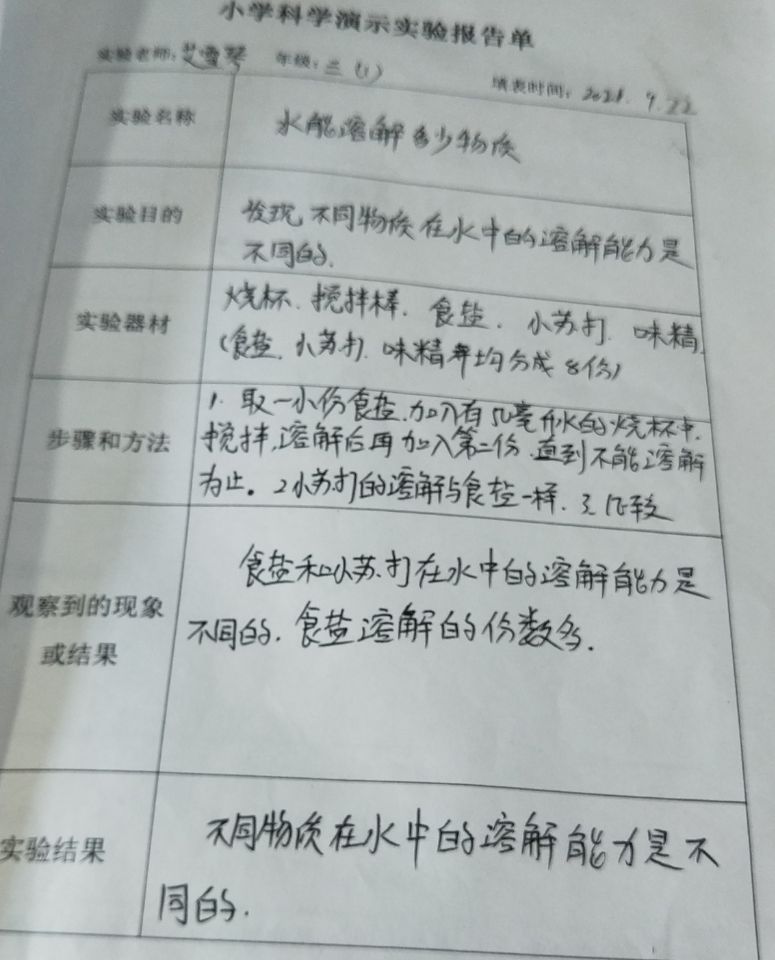 小学科学演示实验报告单
实验老师：艾雪琴 年级：三（1） 填表时间：2021.9.22
实验名称
水能溶解多少物质
实验目的
发现不同物质在水中的溶解能力是
不同的.
实验器材
烧杯、搅拌棒、食盐、小苏打、味精.
（食盐、小苏打、味精平均分成8份）
步骤和方法
1. 取一小份食盐.加入有50毫升水的烧杯中.
搅拌,溶解后再加入第二份.直到不能溶解
为止。2小苏打的溶解与食盐一样. 3比较
观察到的现象
或结果
食盐和小苏打在水中的溶解能力是
不同的.食盐溶解的份数多.
实验结果
不同物质在水中的溶解能力是不
同的.